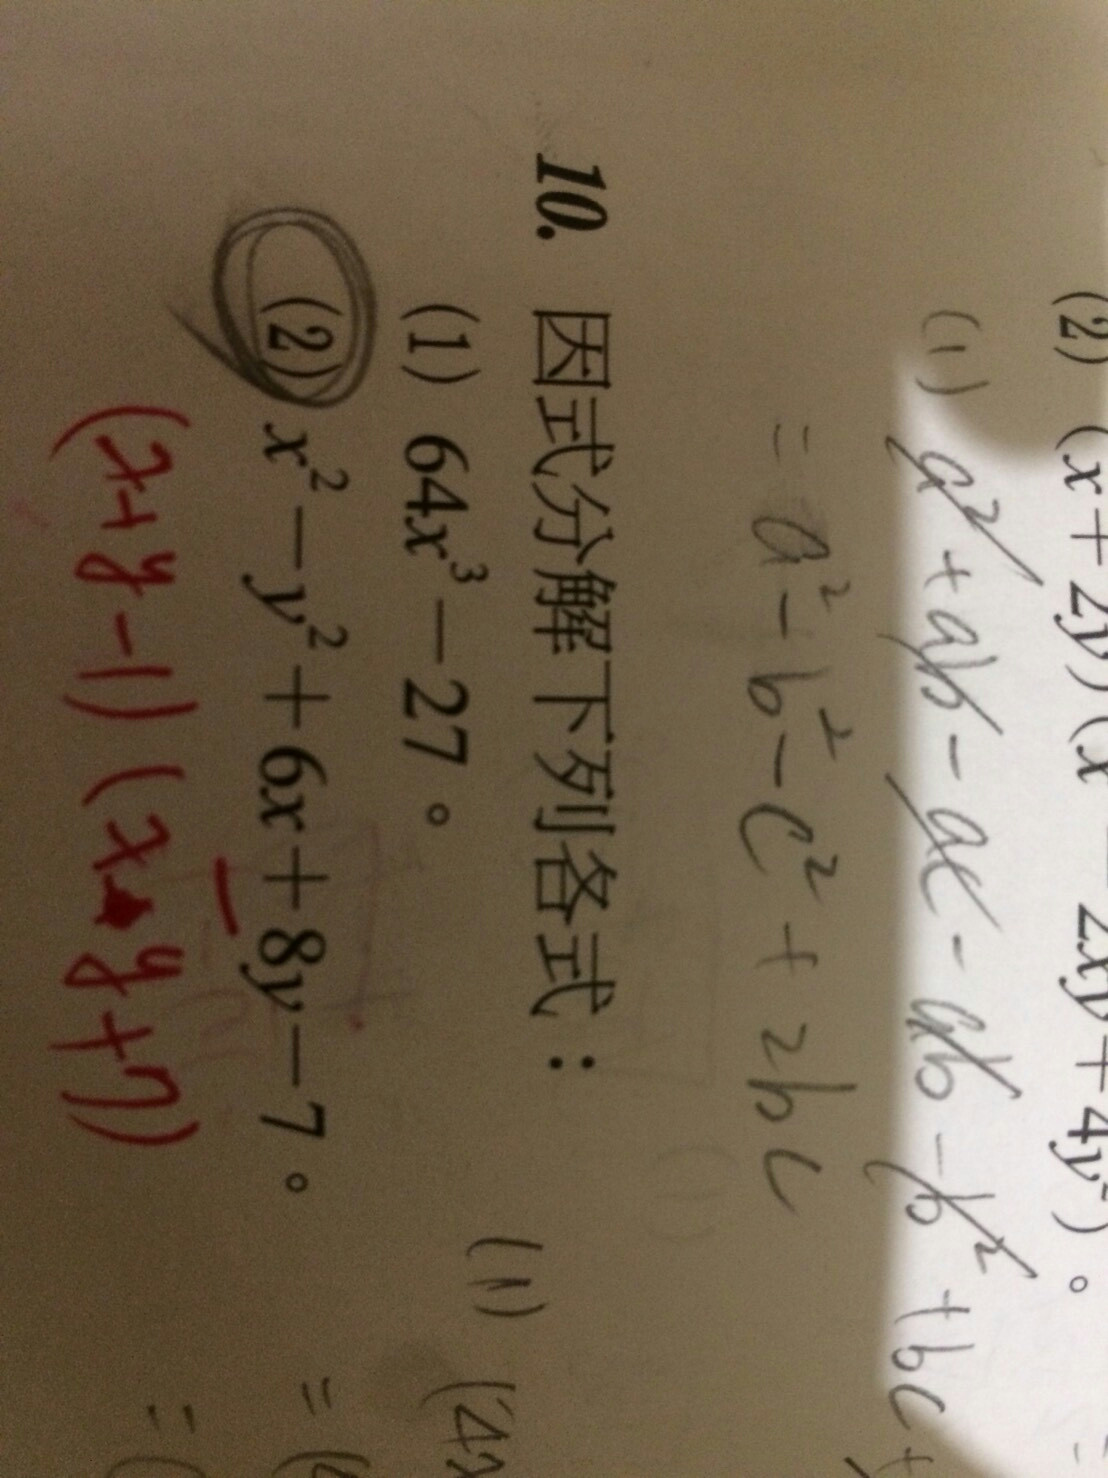 (2) (x+2y)(x²-2xy+4y²)。
(1) a²+ab-ac-ab-b²+bc+
=a²-b²-c²+2bc
10. 因式分解下列各式：
(1) 64x³-27。
(1) (4x
(2) x²-y²+6x+8y-7。
= (
(x+y-1)(x-y+7)
= (